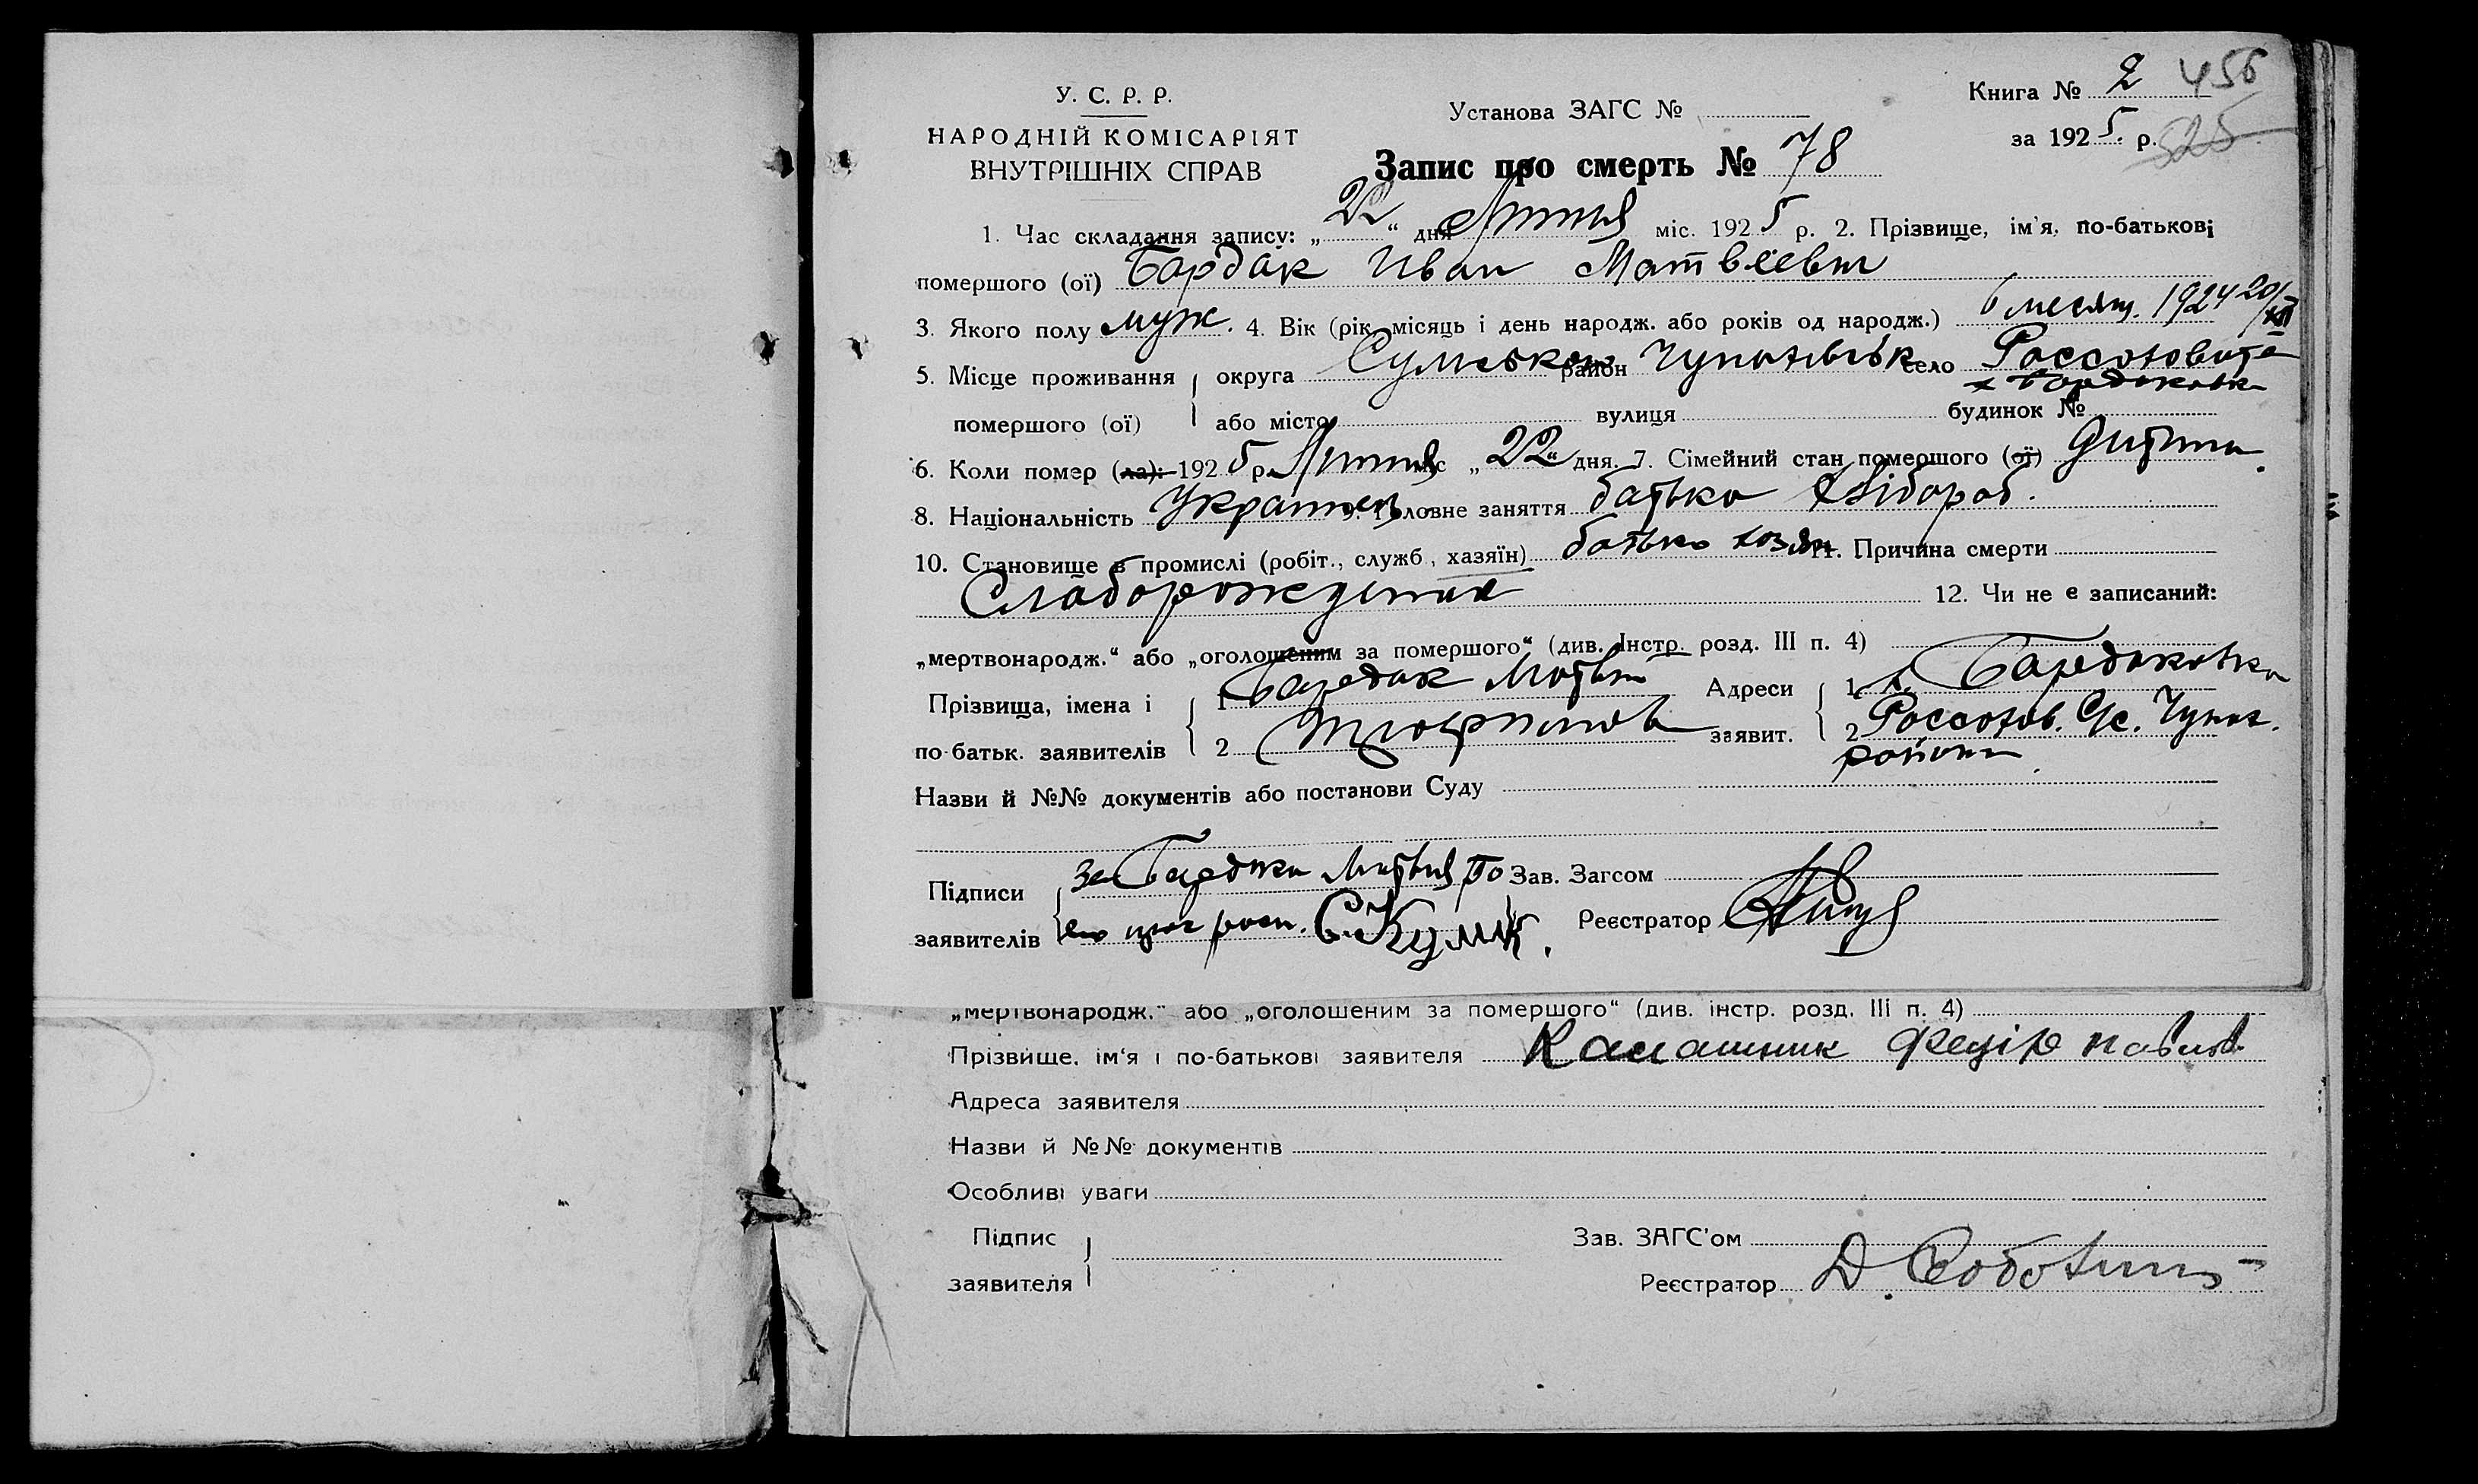 Книга № 2 456
У. С. Р. Р.
Установа ЗАГС №
НАРОДНІЙ КОМІСАРІЯТ
за 1925. р. 525
ВНУТРІШНІХ СПРАВ
Запис про смерть № 78
1. Час складання запису: „22“ дня міс. 1925 р. 2. Прізвище, ім'я, по-батькові
помершого (ої) Бардак Иван Матвеевич
3. Якого полу муж. 4. Вік (рік, місяць і день народж. або років од народж.) 6 месяц. 1924 20/XII
5. Місце проживання округа район село
х Бардаковка
помершого (ої) або місто вулиця будинок №
6. Коли помер (ла): 1925 р. міс „22“ дня. 7. Сімейний стан помершого (ої) Дитина.
8. Національність Украинец 9. Головне заняття батько хлібороб.
10. Становище в промислі (робіт., служб., хазяїн) батько хозяин 11. Причина смерти
Слаборождения 12. Чи не є записаний:
„мертвонародж.“ або „оголошеним за помершого“ (див. Інстр. розд. III п. 4)
Прізвища, імена і 1 Бардак Адреси 1 х. Бардаковка
по-батьк. заявителів 2 заявит. 2 Россохов. С/с. Чупах.
района
Назви й №№ документів або постанови Суду
Підписи За Бардака по Зав. Загсом
заявителів его росп. Реєстратор
„мертвонародж.“ або „оголошеним за помершого“ (див. інстр. розд. III п. 4)
Прізвище, ім'я і по-батькові заявителя Калашник Федір Павлов
Адреса заявителя
Назви й №№ документів
Особливі уваги
Підпис Зав. ЗАГС'ом
заявителя Реєстратор Д.